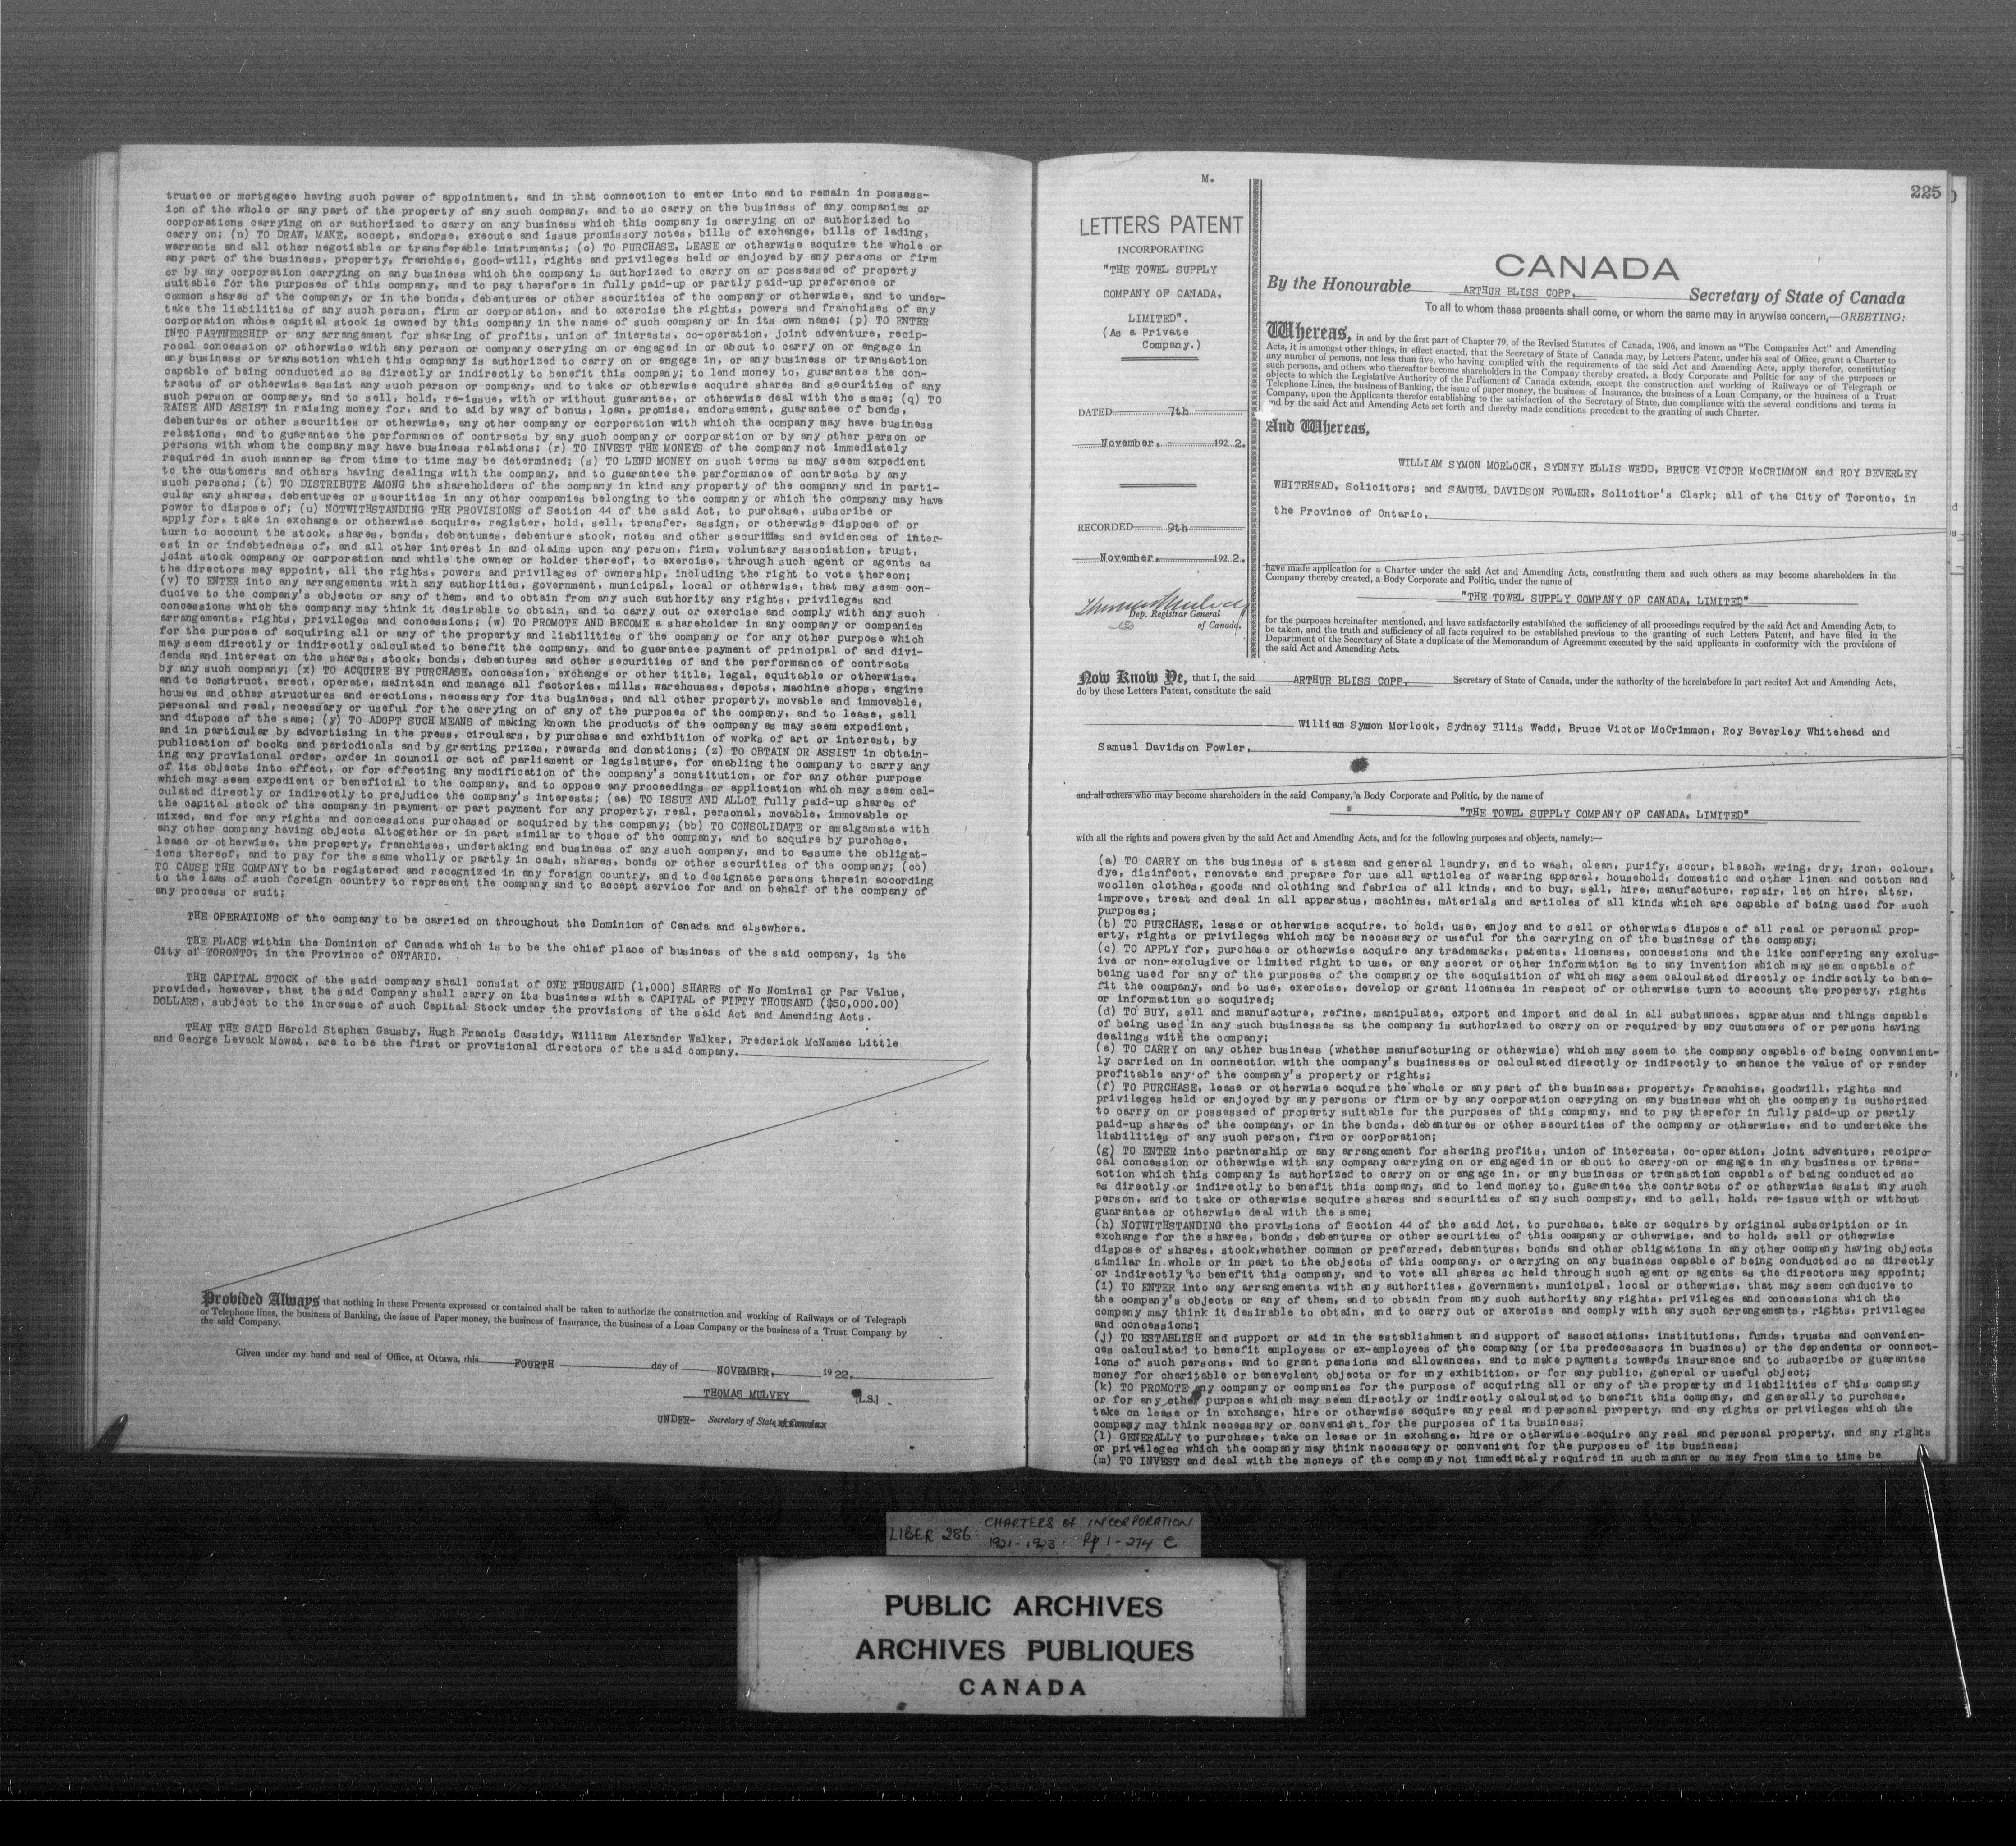 trustee or mortgagee having such power of appointment, and in that connection to enter into and to remain in possess-
ion of the whole or any part of the property of any such company, and to so carry on the business of any companies or
corporations carrying on or authorized to carry on any business which this company is carrying on or authorized to
carry on; (n) TO DRAW, MAKE, accept, endorse, execute and issue promissory notes, bills of exchange, bills of lading,
warrants and all other negotiable or transferable instruments; (o) TO PURCHASE, LEASE or otherwise acquire the whole or
any part of the business, property, franchise, good-will, rights and privileges held or enjoyed by any persons or firm
or by any corporation carrying on any business which the company is authorized to carry on or possessed of property
suitable for the purposes of this company, and to pay therefore in fully paid-up or partly paid-up preference or
common shares of the company, or in the bonds, debentures or other securities of the company or otherwise, and to under-
take the liabilities of any such person, firm or corporation, and to exercise the rights, powers and franchises of any
corporation whose capital stock is owned by this company in the name of such company or in its own name; (p) TO ENTER
INTO PARTNERSHIP or any arrangement for sharing of profits, union of interests, co-operation, joint adventure, recip-
rocal concession or otherwise with any person or company carrying on or engaged in or about to carry on or engage in
any business or transaction which this company is authorized to carry on or engage in, or any business or transaction
capable of being conducted so as directly or indirectly to benefit this company; to lend money to, guarantee the con-
tracts of or otherwise assist any such person or company, and to take or otherwise acquire shares and securities of any
such person or company, and to sell, hold, re-issue, with or without guarantee, or otherwise deal with the same; (q) TO
RAISE AND ASSIST in raising money for, and to aid by way of bonus, loan, promise, endorsement, guarantee of bonds,
debentures or other securities or otherwise, any other company or corporation with which the company may have business
relations, and to guarantee the performance of contracts by any such company or corporation or by any other person or
persons with whom the company may have business relations; (r) TO INVEST THE MONEYS of the company not immediately
required in such manner as from time to time may be determined; (s) TO LEND MONEY on such terms as may seem expedient
to the customers and others having dealings with the company, and to guarantee the performance of contracts by any
such persons; (t) TO DISTRIBUTE AMONG the shareholders of the company in kind any property of the company and in parti-
cular any shares, debentures or securities in any other companies belonging to the company or which the company may have
power to dispose of; (u) NOTWITHSTANDING THE PROVISIONS of Section 44 of the said Act, to purchase, subscribe or
apply for, take in exchange or otherwise acquire, register, hold, sell, transfer, assign, or otherwise dispose of or
turn to account the stock, shares, bonds, debentures, debenture stock, notes and other securities and evidences of inter-
est in or indebtedness of, and all other interest in and claims upon any person, firm, voluntary association, trust,
joint stock company or corporation and while the owner or holder thereof, to exercise, through such agent or agents as
the directors may appoint, all the rights, powers and privileges of ownership, including the right to vote thereon;
(v) TO ENTER into any arrangements with any authorities, government, municipal, local or otherwise, that may seem con-
ducive to the company's objects or any of them, and to obtain from any such authority any rights, privileges and
concessions which the company may think it desirable to obtain, and to carry out or exercise and comply with any such
arrangements, rights, privileges and concessions; (w) TO PROMOTE AND BECOME a shareholder in any company or companies
for the purpose of acquiring all or any of the property and liabilities of the company or for any other purpose which
may seem directly or indirectly calculated to benefit the company, and to guarantee payment of principal of and divi-
dends and interest on the shares, stock, bonds, debentures and other securities of and the performance of contracts
by any such company; (x) TO ACQUIRE BY PURCHASE, concession, exchange or other title, legal, equitable or otherwise,
and to construct, erect, operate, maintain and manage all factories, mills, warehouses, depots, machine shops, engine
houses and other structures and erections, necessary for its business, and all other property, movable and immovable,
personal and real, necessary or useful for the carrying on of any of the purposes of the company, and to lease, sell
and dispose of the same; (y) TO ADOPT SUCH MEANS of making known the products of the company as may seem expedient,
and in particular by advertising in the press, circulars, by purchase and exhibition of works of art or interest, by
publication of books and periodicals and by granting prizes, rewards and donations; (z) TO OBTAIN OR ASSIST in obtain-
ing any provisional order, order in council or act of parliament or legislature, for enabling the company to carry any
of its objects into effect, or for effecting any modification of the company's constitution, or for any other purpose
which may seem expedient or beneficial to the company, and to oppose any proceedings or application which may seem cal-
culated directly or indirectly to prejudice the company's interests; (aa) TO ISSUE AND ALLOT fully paid-up shares of
the capital stock of the company in payment or part payment for any property, real, personal, movable, immovable or
mixed, and for any rights and concessions purchased or acquired by the company; (bb) TO CONSOLIDATE or amalgamate with
any other company having objects altogether or in part similar to those of the company, and to acquire by purchase,
lease or otherwise, the property, franchises, undertaking and business of any such company, and to assume the obligat-
ions thereof, and to pay for the same wholly or partly in cash, shares, bonds or other securities of the company; (cc)
TO CAUSE THE COMPANY to be registered and recognized in any foreign country, and to designate persons therein according
to the laws of such foreign country to represent the company and to accept service for and on behalf of the company of
any process or suit;
THE OPERATIONS of the company to be carried on throughout the Dominion of Canada and elsewhere.
THE PLACE within the Dominion of Canada which is to be the chief place of business of the said company, is the
City of TORONTO, in the Province of ONTARIO.
THE CAPITAL STOCK of the said company shall consist of ONE THOUSAND (1,000) SHARES of No Nominal or Par Value,
provided, however, that the said Company shall carry on its business with a CAPITAL of FIFTY THOUSAND ($50,000.00)
DOLLARS, subject to the increase of such Capital Stock under the provisions of the said Act and Amending Acts.
THAT THE SAID Harold Stephen Gausby, Hugh Francis Cassidy, William Alexander Walker, Frederick McNamee Little
and George Levack Mowat, are to be the first or provisional directors of the said company.
Provided Always that nothing in these Presents expressed or contained shall be taken to authorize the construction and working of Railways or of Telegraph
or Telephone lines, the business of Banking, the issue of Paper money, the business of Insurance, the business of a Loan Company or the business of a Trust Company by
the said Company.
Given under my hand and seal of Office, at Ottawa, this FOURTH day of NOVEMBER, 1922.
THOMAS MULVEY [L.S.]
UNDER- Secretary of State of Canada
M.
225
LETTERS PATENT
INCORPORATING
"THE TOWEL SUPPLY
COMPANY OF CANADA,
LIMITED".
(As a Private
Company.)
DATED 7th
November, 1922.
RECORDED 9th
November, 1922.
Thomas Mulvey
Dep. Registrar General
of Canada.
CANADA
By the Honourable ARTHUR BLISS COPP, Secretary of State of Canada
To all to whom these presents shall come, or whom the same may in anywise concern,—GREETING:
Whereas, in and by the first part of Chapter 79, of the Revised Statutes of Canada, 1906, and known as "The Companies Act" and Amending
Acts, it is amongst other things, in effect enacted, that the Secretary of State of Canada may, by Letters Patent, under his seal of Office, grant a Charter to
any number of persons, not less than five, who having complied with the requirements of the said Act and Amending Acts, apply therefor, constituting
such persons, and others who thereafter become shareholders in the Company thereby created, a Body Corporate and Politic for any of the purposes or
objects to which the Legislative Authority of the Parliament of Canada extends, except the construction and working of Railways or of Telegraph or
Telephone Lines, the business of Banking, the issue of paper money, the business of Insurance, the business of a Loan Company, or the business of a Trust
Company, upon the Applicants therefor establishing to the satisfaction of the Secretary of State, due compliance with the several conditions and terms in
and by the said Act and Amending Acts set forth and thereby made conditions precedent to the granting of such Charter.
And Whereas,
WILLIAM SYMON MORLOCK, SYDNEY ELLIS WEDD, BRUCE VICTOR McCRIMMON and ROY BEVERLEY
WHITEHEAD, Solicitors; and SAMUEL DAVIDSON FOWLER, Solicitor's Clerk; all of the City of Toronto, in
the Province of Ontario,
have made application for a Charter under the said Act and Amending Acts, constituting them and such others as may become shareholders in the
Company thereby created, a Body Corporate and Politic, under the name of
"THE TOWEL SUPPLY COMPANY OF CANADA, LIMITED"
for the purposes hereinafter mentioned, and have satisfactorily established the sufficiency of all proceedings required by the said Act and Amending Acts, to
be taken, and the truth and sufficiency of all facts required to be established previous to the granting of such Letters Patent, and have filed in the
Department of the Secretary of State a duplicate of the Memorandum of Agreement executed by the said applicants in conformity with the provisions of
the said Act and Amending Acts.
Now Know Ye, that I, the said ARTHUR BLISS COPP, Secretary of State of Canada, under the authority of the hereinbefore in part recited Act and Amending Acts,
do by these Letters Patent, constitute the said
William Symon Morlock, Sydney Ellis Wedd, Bruce Victor McCrimmon, Roy Beverley Whitehead and
Samuel Davidson Fowler,
and all others who may become shareholders in the said Company, a Body Corporate and Politic, by the name of
"THE TOWEL SUPPLY COMPANY OF CANADA, LIMITED"
with all the rights and powers given by the said Act and Amending Acts, and for the following purposes and objects, namely:—
(a) TO CARRY on the business of a steam and general laundry, and to wash, clean, purify, scour, bleach, wring, dry, iron, colour,
dye, disinfect, renovate and prepare for use all articles of wearing apparel, household, domestic and other linen and cotton and
woollen clothes, goods and clothing and fabrics of all kinds, and to buy, sell, hire, manufacture, repair, let on hire, alter,
improve, treat and deal in all apparatus, machines, mAterials and articles of all kinds which are capable of being used for such
purposes;
(b) TO PURCHASE, lease or otherwise acquire, to hold, use, enjoy and to sell or otherwise dispose of all real or personal prop-
erty, rights or privileges which may be necessary or useful for the carrying on of the business of the company;
(c) TO APPLY for, purchase or otherwise acquire any trademarks, patents, licenses, concessions and the like conferring any exclus-
ive or non-exclusive or limited right to use, or any secret or other information as to any invention which may seem capable of
being used for any of the purposes of the company or the acquisition of which may seem calculated directly or indirectly to bene-
fit the company, and to use, exercise, develop or grant licenses in respect of or otherwise turn to account the property, rights
or information so acquired;
(d) TO BUY, sell and manufacture, refine, manipulate, export and import and deal in all substances, apparatus and things capable
of being used in any such businesses as the company is authorized to carry on or required by any customers of or persons having
dealings with the company;
(e) TO CARRY on any other business (whether manufacturing or otherwise) which may seem to the company capable of being convenient-
ly carried on in connection with the company's businesses or calculated directly or indirectly to enhance the value of or render
profitable any of the company's property or rights;
(f) TO PURCHASE, lease or otherwise acquire the whole or any part of the business, property, franchise, goodwill, rights and
privileges held or enjoyed by any persons or firm or by any corporation carrying on any business which the company is authorized
to carry on or possessed of property suitable for the purposes of this company, and to pay therefor in fully paid-up or partly
paid-up shares of the company, or in the bonds, debentures or other securities of the company or otherwise, and to undertake the
liabilities of any such person, firm or corporation;
(g) TO ENTER into partnership or any arrangement for sharing profits, union of interests, co-operation, joint adventure, recipro-
cal concession or otherwise with any company carrying on or engaged in or about to carry on or engage in any business or trans-
action which this company is authorized to carry on or engage in, or any business or transaction capable of being conducted so
as directly or indirectly to benefit this company, and to lend money to, guarantee the contracts of or otherwise assist any such
person, and to take or otherwise acquire shares and securities of any such company, and to sell, hold, re-issue with or without
guarantee or otherwise deal with the same;
(h) NOTWITHSTANDING the provisions of Section 44 of the said Act, to purchase, take or acquire by original subscription or in
exchange for the shares, bonds, debentures or other securities of this company or otherwise, and to hold, sell or otherwise
dispose of shares, stock,whether common or preferred, debentures, bonds and other obligations in any other company having objects
similar in whole or in part to the objects of this company, or carrying on any business capable of being conducted so as directly
or indirectly to benefit this company, and to vote all shares so held through such agent or agents as the directors may appoint;
(i) TO ENTER into any arrangements with any authorities, government, municipal, local or otherwise, that may seem conducive to
the company's objects or any of them, and to obtain from any such authority any rights, privileges and concessions which the
company may think it desirable to obtain, and to carry out or exercise and comply with any such arrangements, rights, privileges
and concessions;
(j) TO ESTABLISH and support or aid in the establishment and support of associations, institutions, funds, trusts and convenien-
ces calculated to benefit employees or ex-employees of the company (or its predecessors in business) or the dependents or connect-
ions of such persons, and to grant pensions and allowances, and to make payments towards insurance and to subscribe or guarantee
money for charitable or benevolent objects or for any exhibition, or for any public, general or useful object;
(k) TO PROMOTE any company or companies for the purpose of acquiring all or any of the property and liabilities of this company
or for any other purpose which may seem directly or indirectly calculated to benefit this company, and generally to purchase,
take on lease or in exchange, hire or otherwise acquire any real and personal property, and any rights or privileges which the
company may think necessary or convenient for the purposes of its business;
(l) GENERALLY to purchase, take on lease or in exchange, hire or otherwise acquire any real and personal property, and any rights
or privileges which the company may think necessary or convenient for the purposes of its business;
(m) TO INVEST and deal with the moneys of the company not immediately required in such manner as may from time to time be
LIBER 286: CHARTERS OF INCORPORATION
1921-1923. Pp 1-274 C
PUBLIC ARCHIVES
ARCHIVES PUBLIQUES
CANADA